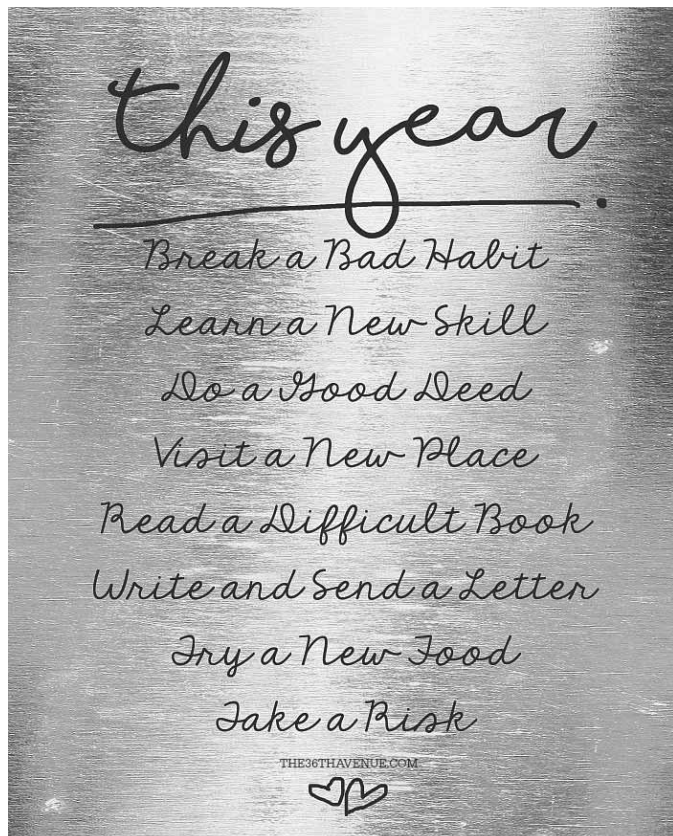 this year
Break a Bad Habit
Learn a New Skill
Do a Good Deed
Visit a New Place
Read a Difficult Book
Write and Send a Letter
Try a New Food
Take a Risk
THE36THAVENUE.COM